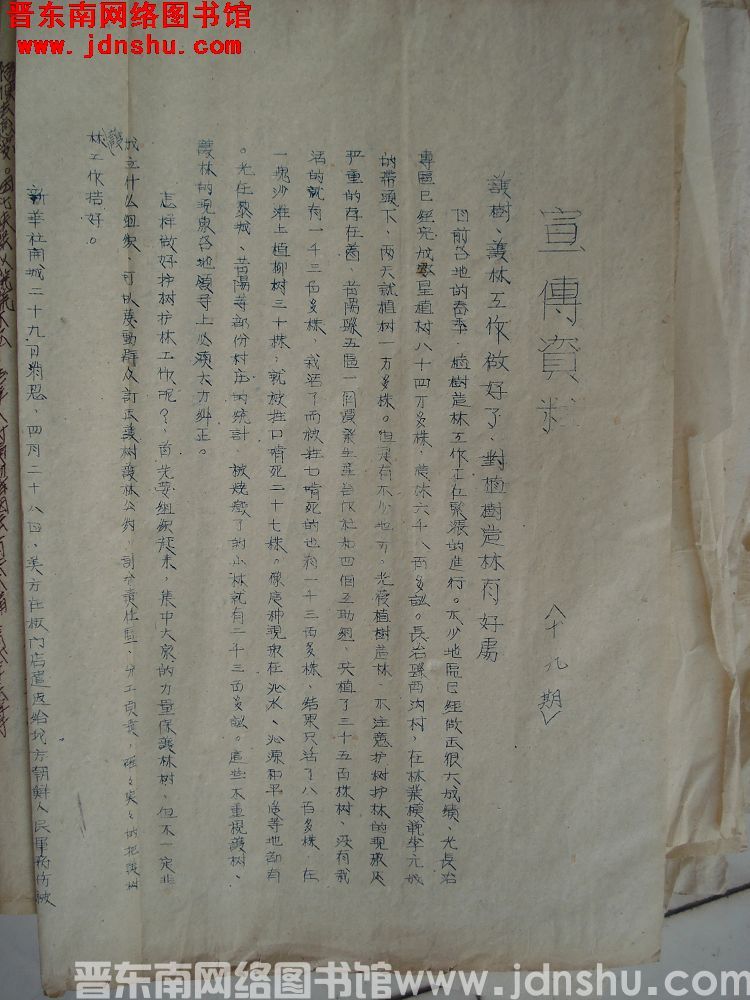 晋东南网络图书馆
www.jdnshu.com
宣傳資料
〈十九期〉
護樹、護林工作做好了、對植樹造林有好處
目前各地的春季、植樹造林工作正在緊張的進行。不少地區已經做出很大成績、光長治
專區已經完成數星植樹八十四万多株，造林六千八百多畝。長治縣西沟村，在林業模範李
的帶頭下，兩天就植树一万多株。但是有不少地方，光後植樹造林，不注意护树护林的現象
严重的存在着，昔陽縣五區一個農業生產合作社和四個互助組，共植了三十五百株树，没有栽
活的就有一千三百多株，栽活了而被牲口啃死的也有一千三百多株，结果只活了八百多株。在
一塊沙灘上植柳树三十株，就被牲口啃死二十七株。像這种現象在沁水、沁源和平定等地都有
。光在黎城、昔陽等部份村庄的統計，被燒毀了的小林就有二千三百多畝。這些不重視護树、
護林的現象各地領導上必須大力糾正。
怎樣做好护树护林工作呢？，首先要組織起来，集中大家的力量保護林树，但不一定非
成立什么組織，可以發動群众訂出護树護林公約，劃分責任區，分工負責，確々实々的把護树
護林工作搞好。
新華社開城二十九日消息，四月二十八日，美方在板门店遣返给我方朝鲜人民軍病伤被
晋东南网络图书馆www.jdnshu.com